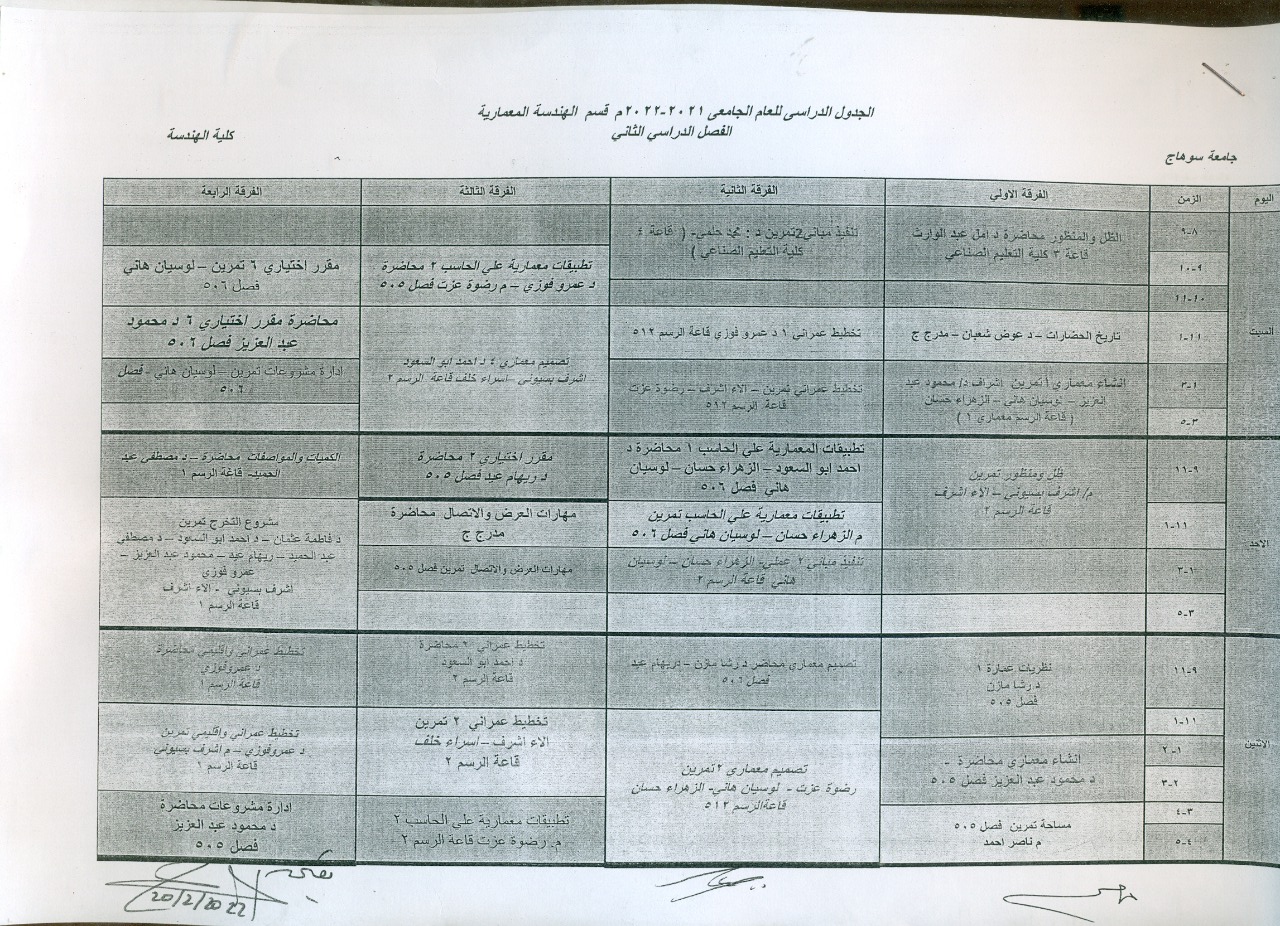 الجدول الدراسى للعام الجامعى ٢٠٢١-٢٠٢٢م قسم الهندسة المعمارية
الفصل الدراسي الثاني
كلية الهندسة
جامعة سوهاج
اليوم
الزمن
الفرقة الاولي
الفرقة الثانية
الفرقة الثالثة
الفرقة الرابعة
السبت
٨-٩
٩-١٠
١٠-١١
١١-١
١-٣
٣-٥
الظل والمنظور محاضرة د امل عبد الوارث
قاعة ٣ كلية التعليم الصناعي
تاريخ الحضارات – د عوض شعبان – مدرج ج
انشاء معماري ١ تمرين اشراف د/ محمود عبد
العزيز – لوسيان هاني – الزهراء حسان
(قاعة الرسم معماري ١ )
تنفيذ مباني2تمرين د : محمد حلمي- ( قاعة ٤
كلية التعليم الصناعي )
تخطيط عمراني ١ د عمرو فوزي قاعة الرسم ٥١٢
تخطيط عمراني تمرين – الاء اشرف – رضوة عزت
قاعة الرسم ٥١٢
تطبيقات معمارية علي الحاسب ٢ محاضرة
د عمرو فوزي – م رضوة عزت فصل ٥٠٥
تصميم معماري ٤ د احمد ابو السعود
اشرف بسيوني – اسراء خلف قاعة الرسم ٢
مقرر اختياري ٦ تمرين – لوسيان هاني
فصل ٥٠٦
محاضرة مقرر اختياري ٦ د محمود
عبد العزيز فصل ٥٠٦
ادارة مشروعات تمرين – لوسيان هاني – فصل
٥٠٦
الاحد
٩-١١
١١-١
١-٣
٣-٥
ظل ومنظور تمرين
م/ اشرف بسيوني – الاء اشرف
قاعة الرسم ٢
تطبيقات المعمارية علي الحاسب ١ محاضرة د
احمد ابو السعود – الزهراء حسان – لوسيان
هاني فصل ٥٠٦
تطبيقات معمارية علي الحاسب تمرين
م الزهراء حسان – لوسيان هاني فصل ٥٠٦
تنفيذ مباني ٢ عملي- الزهراء حسان – لوسيان
هاني قاعة الرسم ٢
مقرر اختياري ٢ محاضرة
د ريهام عبد فصل ٥٠٥
مهارات العرض والاتصال محاضرة
مدرج ج
مهارات العرض والاتصال تمرين فصل ٥٠٥
الكميات والمواصفات محاضرة – د مصطفى عبد
الحميد- قاعة الرسم ١
مشروع التخرج تمرين
د فاطمة عثمان – د احمد ابو السعود – د مصطفي
عبد الحميد – ريهام عيد – محمود عبد العزيز –
عمرو فوزي
اشرف بسيوني - الاء اشرف
قاعة الرسم ١
الاثنين
٩-١١
١١-١
١-٢
٢-٣
٣-٤
٤-٥
نظريات عمارة ١
د رشا مازن
فصل ٥٠٥
انشاء معماري محاضرة -
د محمود عبد العزيز فصل ٥٠٥
مساحة تمرين فصل ٥٠٥
م ناصر احمد
تصميم معماري محاضر د رشا مازن – دريهام عيد
فصل ٥٠٦
تصميم معماري ٢ تمرين
رضوة عزت - لوسيان هاني- الزهراء حسان
قاعةالرسم ٥١٢
تخطيط عمراني ٢ محاضرة
د احمد ابو السعود
قاعة الرسم ٢
تخطيط عمراني ٢ تمرين
الاء اشرف – اسراء خلف
قاعة الرسم ٢
تطبيقات معمارية علي الحاسب ٢
م. رضوة عزت قاعة الرسم ٢
تخطيط عمراني واقليمي محاضرة
د عمروفوزي
قاعة الرسم ١
تخطيط عمراني واقليمي تمرين
د عمروفوزي – م اشرف بسيوني
قاعة الرسم ١
ادارة مشروعات محاضرة
د محمود عبد العزيز
فصل ٥٠٥
20/2/2022